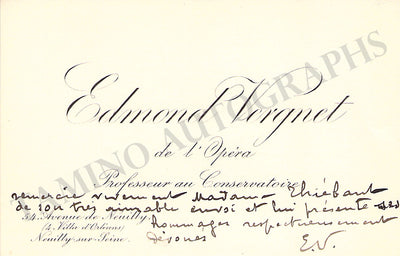 Edmond Vergnet
de l'Opéra
Professeur au Conservatoire
remercie vivement Madame Thiébaut
de son très aimable envoi et lui présente ses
34, Avenue de Neuilly hommages respectueusement
(4, Villa d'Orléans) dévoués
Neuilly-sur-Seine. E.V.
TAMINO AUTOGRAPHS